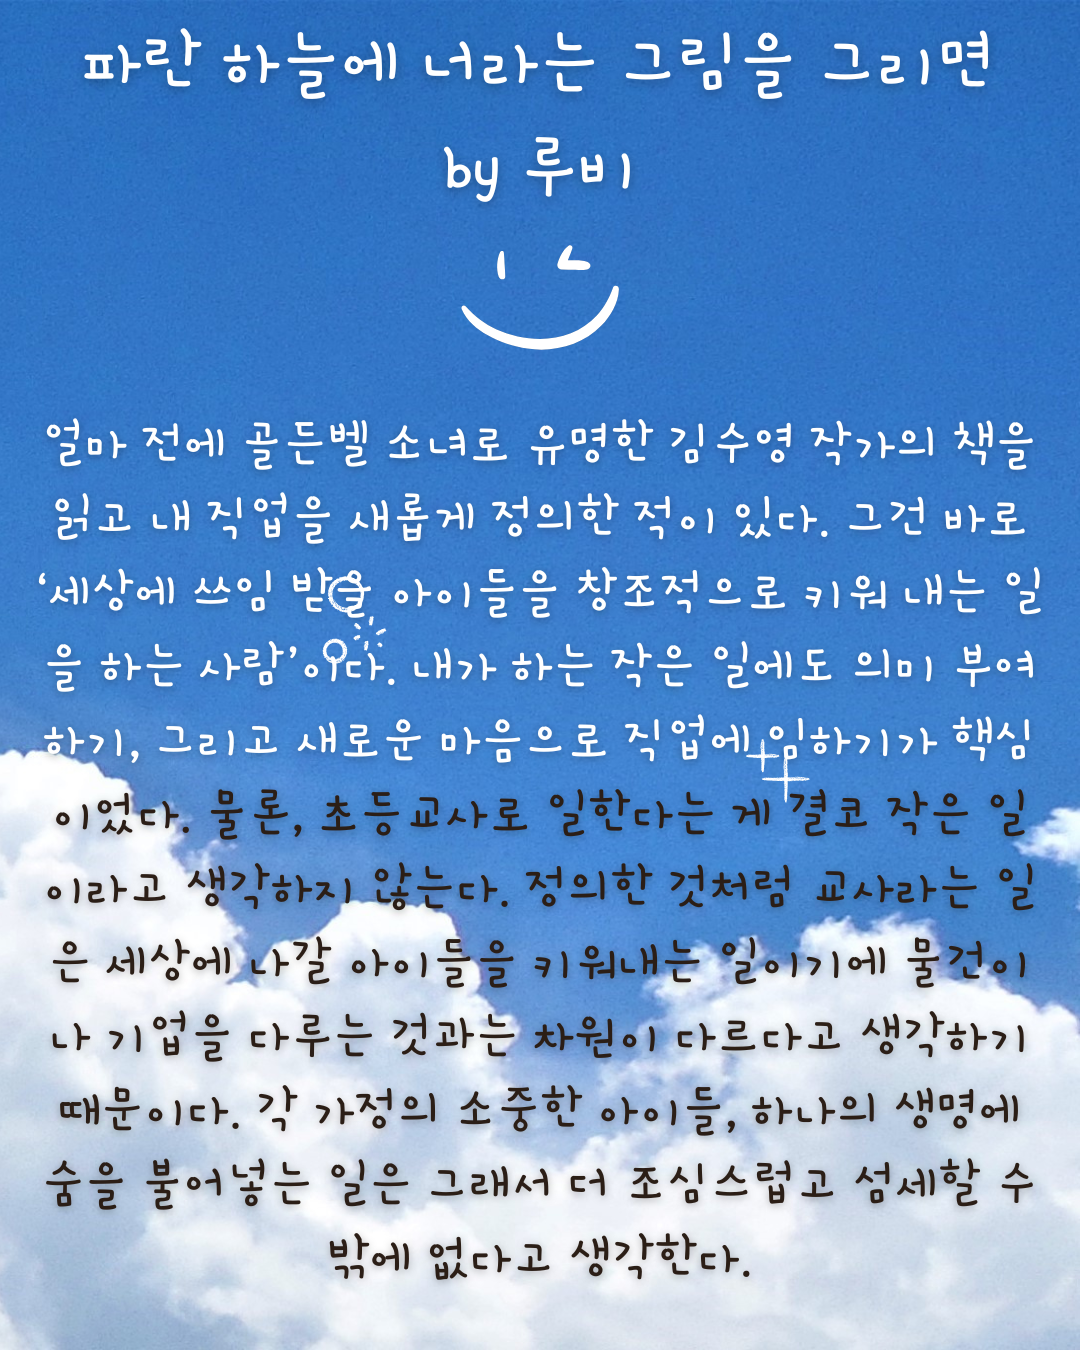 파란 하늘에 너라는 그림을 그리면
by 루비
얼마 전에 골든벨 소녀로 유명한 김수영 작가의 책을
읽고 내 직업을 새롭게 정의한 적이 있다. 그건 바로
‘세상에 쓰임 받을 아이들을 창조적으로 키워 내는 일
을 하는 사람’이다. 내가 하는 작은 일에도 의미 부여
하기, 그리고 새로운 마음으로 직업에 임하기가 핵심
이었다. 물론, 초등교사로 일한다는 게 결코 작은 일
이라고 생각하지 않는다. 정의한 것처럼 교사라는 일
은 세상에 나갈 아이들을 키워내는 일이기에 물건이
나 기업을 다루는 것과는 차원이 다르다고 생각하기
때문이다. 각 가정의 소중한 아이들, 하나의 생명에
숨을 불어넣는 일은 그래서 더 조심스럽고 섬세할 수
밖에 없다고 생각한다.